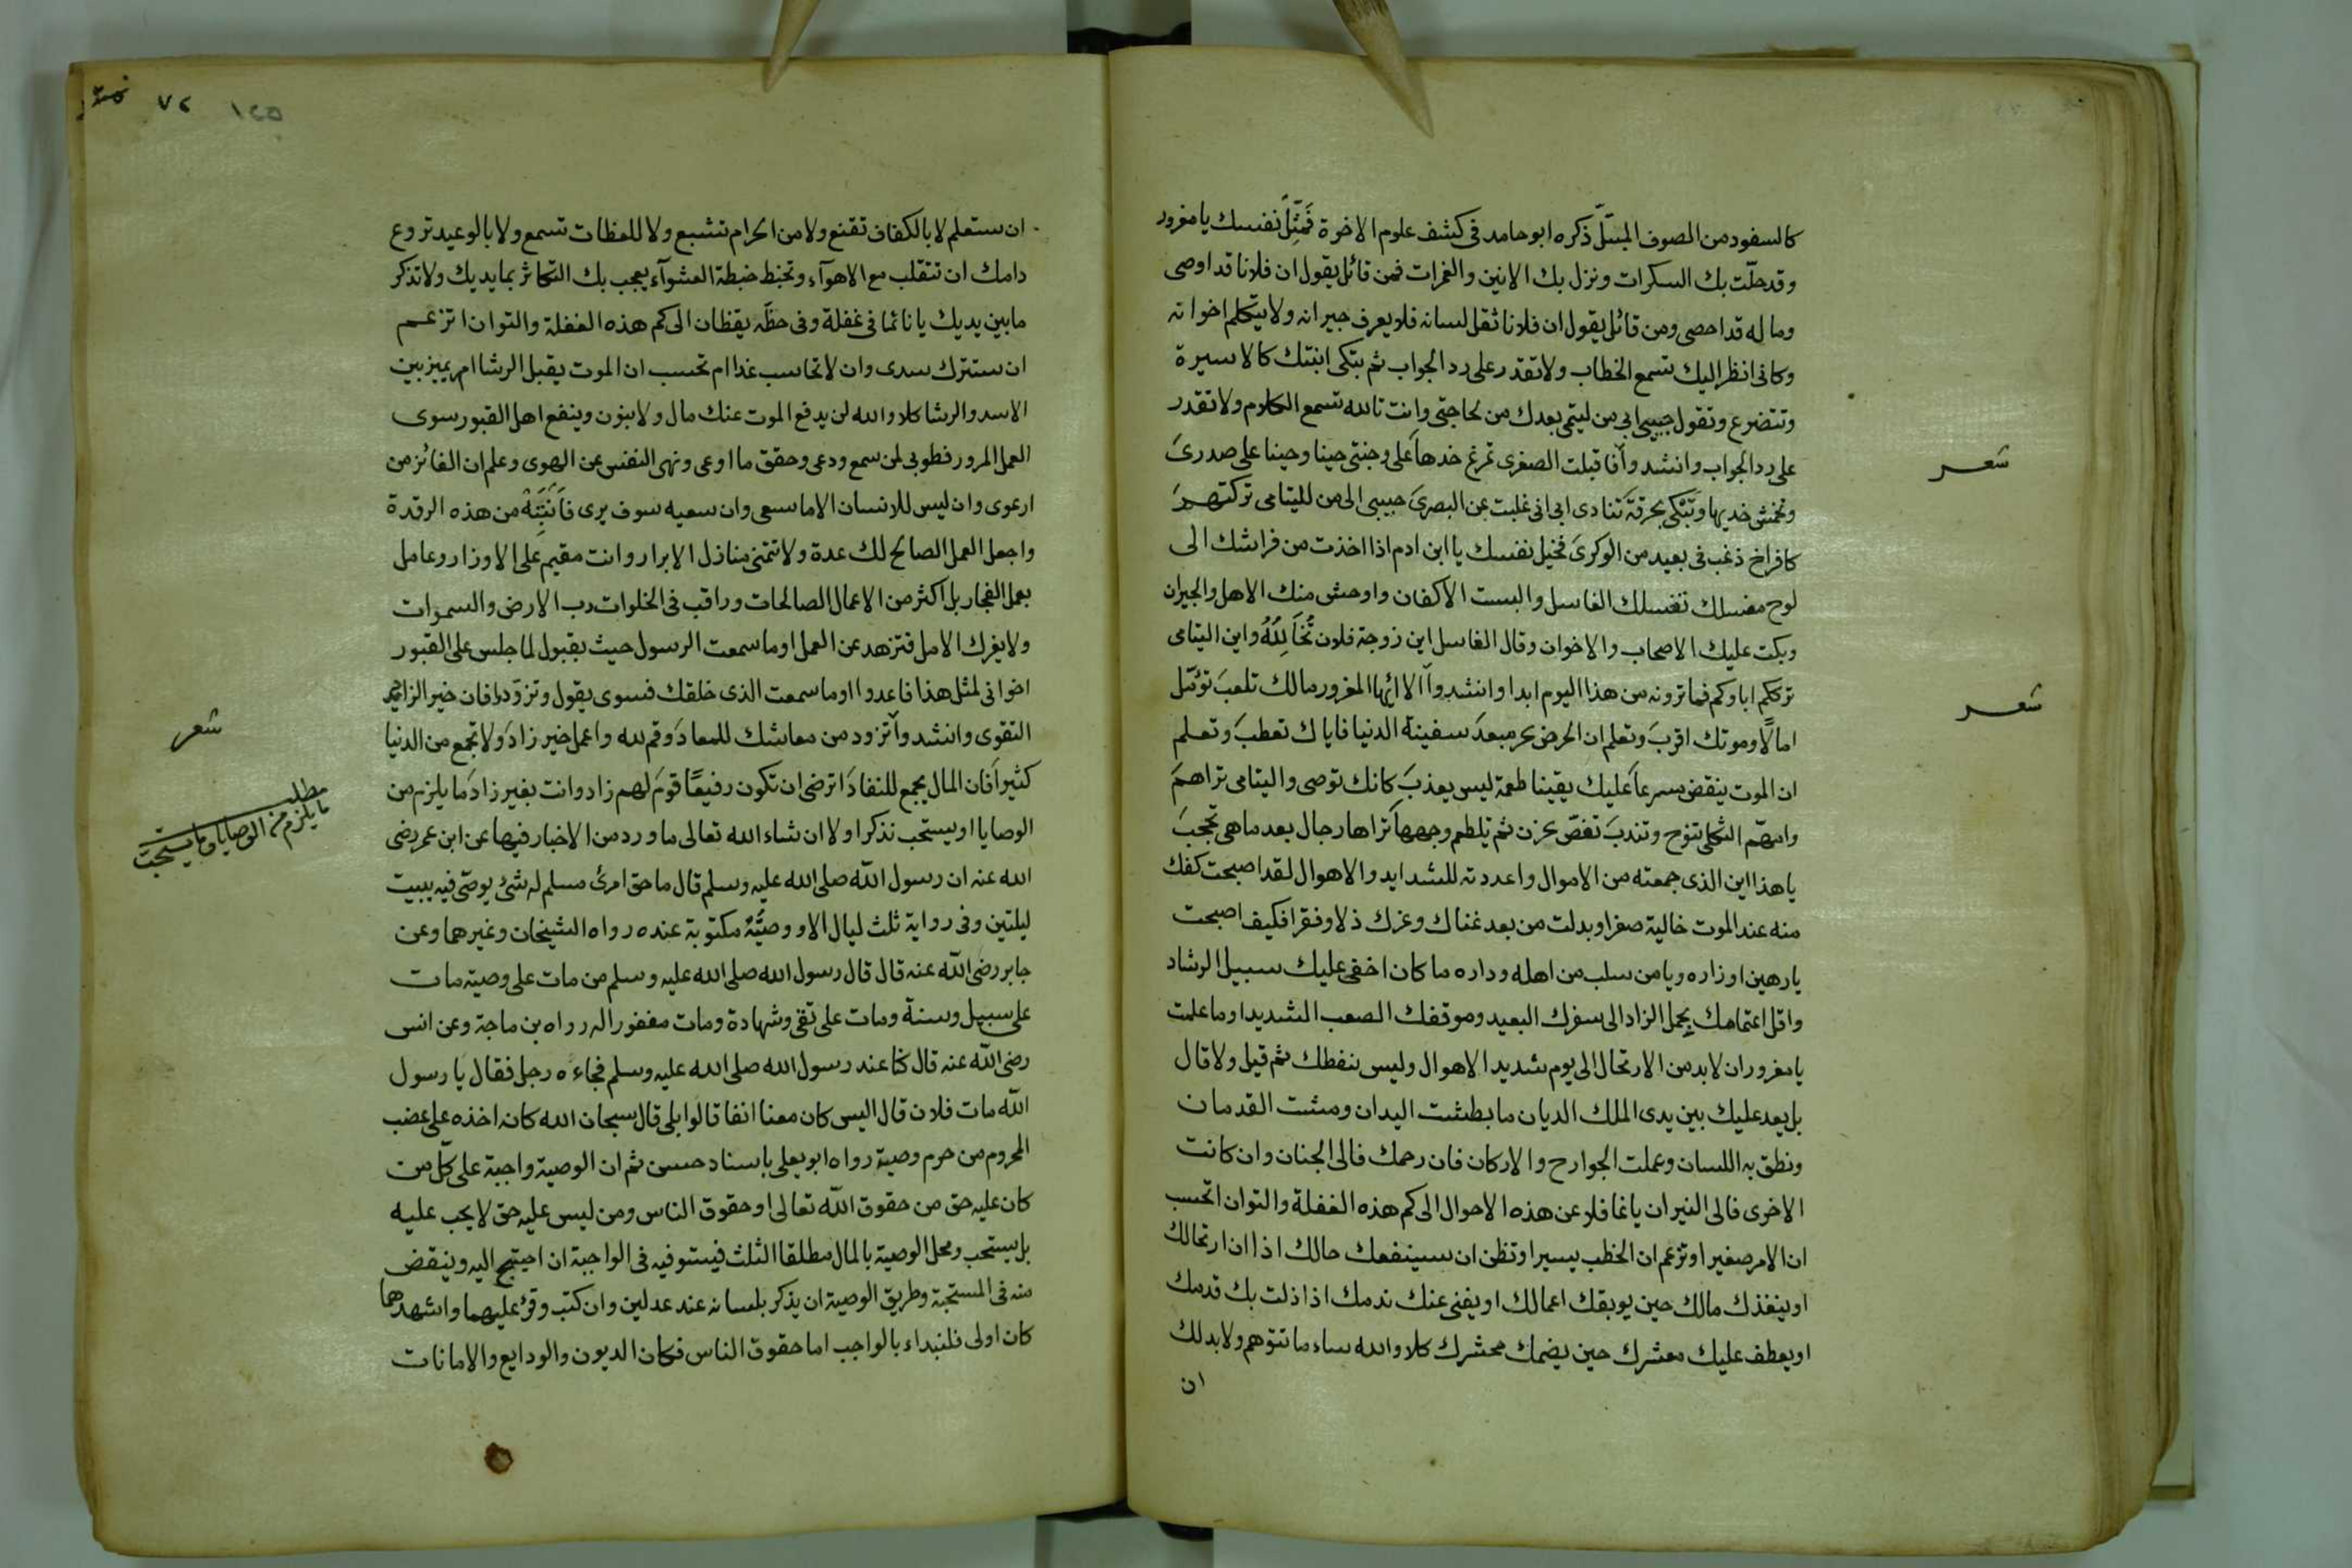 كالسفود من الصوف المبتلّ ذكره ابو حامد فى كشف علوم الاخرة فَمَثِّلْ نفسك يا مغرور
وقد حلّت بك السكرات ونزل بك الانين والغمرات فمن قائل يقول ان فلانا قد اوصى
وماله قد احصى ومن قائل يقول ان فلانا ثقل لسانه فلا يعرف جيرانه ولا يتكلم اخوانه
وكانى انظر اليك تسمع الخطاب ولا تقدر على رد الجواب ثم تبكى ابنتك كالاسيرة
وتتضرع وتقول حبيبى ابى من ليتمى بعدك من لحاجتى وانت تالله تسمع الكلام ولا تقدر
على رد الجواب وانشدوا فاقبلت الصغرى تمرغ خدها على وجنتى حينا وحينا على صدرى
شعر
وتخمش خديها وتبكى بحرقة تنادى ابى انى غلبت عن البصرى حبيبى الى من لليتامى تركتهم
كافراخ ذغب فى بعيد من الوكرى فخيل نفسك يا ابن ادم اذا اخذت من فراشك الى
لوح مغسلك تغسلك الغاسل والبست الاكفان واوحش منك الاهل والجيران
وبكت عليك الاصحاب والاخوان وقال الغاسل اين زوجة فلان تُحَالِلُهُ واين اليتامى
ترككم اباوكم فما ترونه من هذا اليوم ابدا وانشدوا الا ايها المغرور مالك تلعب تؤمّل
شعر
امالا وموتك اقرب وتعلم ان الحرص بحر مبعد سفينة الدنيا فاياك تعطب وتعلم
ان الموت ينقض سرعا عليك يقينا طعمة ليس يعذب كانك توصى واليتامى تراهم
وامهّم الثكلى تنوح وتندب تغصّ بحزن ثم تلطم وجهها تراها رجال بعد ما هى تحجب
يا هذا اين الذى جمعته من الاموال واعددته للشدايد والاهوال لقد اصبحت كفك
منه عند الموت خالية صفرا وبدلت من بعد غناك وعزك ذلا وفقرا فكيف اصبحت
يا رهين اوزاره ويا من سلب من اهله وداره ما كان اخفى عليك سبيل الرشاد
واقل اهتمامك بحمل الزاد الى سفرك البعيد وموقفك الصعب الشديد اوما علمت
يا مغرور ان لابد من الارتحال الى يوم شديد الاهوال وليس ينفطك ثم قيل ولا قال
بل يعد عليك بين يدى الملك الديان ما بطشت اليدان ومشت القدمان
ونطق به اللسان وعملت الجوارح والاركان فان رحمك فالى الجنان وان كانت
الاخرى فالى النيران يا غافلا عن هذه الاحوال الى كم هذه الغفلة والتوان اتحسب
ان الامر صغيرا وتزعم ان الخطب يسيرا وتظن ان سينفعك حالك اذا ان ارتحالك
او ينقذك مالك حين يوبقك اعمالك او يغنى عنك ندمك اذا ذلت بك قدمك
او يعطف عليك معشرك حين يضمك محشرك كلا والله ساء ما تتوهم ولا بد لك
ان
٧٢
ان ستعلم لا بالكفاف تقنع ولا من الحرام تشبع ولا للعظات تسمع ولا بالوعيد تروع
دامك ان تتقلب مع الاهوآء وتخبط خبطة العشوآء يعجب بك التكاثر بما يديك ولا تذكر
ما بين يديك يا نائما فى غفلة وفى خطّه يقظان الى كم هذه الغفلة والتوان اتزعم
ان ستترك سدى وان لا تحاسب غدا ام تحسب ان الموت يقبل الرشا ام يميز بين
الاسد والرشا كلا والله لن يدفع الموت عنك مال ولا بنون وينفع اهل القبور سوى
العمل المرور فطوبى لمن سمع ودعى وحقق ما اوعى ونهى النفس عن الهوى وعلم ان الفائز من
ارعوى وان ليس للانسان الا ما سعى وان سعيه سوف يرى فَانْتَبِهْ من هذه الرقدة
واجعل العمل الصالح لك عدة ولا تتمنى منازل الابرار وانت مقيم على الاوزار وعامل
بعمل الفجار بل اكثر من الاعمال الصالحات وراقب فى الخلوات رب الارض والسموات
ولا يغرك الامل فتزهد عن العمل اوما سمعت الرسول حيث يقبول لما جلس على القبور
اخوانى لمثل هذا فاعدوا اوما سمعت الذى خلقك فسوى يقول وتزوّدوا فان خير الزاد
التقوى وانشدوا تزود من معاشك للمعاد وقم لله واعمل خير زاد ولا تجمع من الدنيا
شعر
كثيرا فان المال يجمع للنفاد اترضى ان تكون رفيقا قوم لهم زاد وانت بغير زاد ما يلزم من
مطلب ما يلزم من الوصايا وما يستحب
الوصايا او يستحب نذكر اولا ان شاء الله تعالى ما ورد من الاخبار فيها عن ابن عمر رضى
الله عنه ان رسول الله صلى الله عليه وسلم قال ما حق امرئ مسلم له شئ يوصى فيه يبيت
ليلتين وفى رواية ثلث ليال الا ووصيّته مكتوبة عنده رواه الشيخان وغيرهما وعن
جابر رضى الله عنه قال قال رسول الله صلى الله عليه وسلم من مات على وصية مات
على سبيل وسنة ومات على تقى وشهادة ومات مغفورا له رواه بن ماجة وعن انس
رضى الله عنه قال كنا عند رسول الله صلى الله عليه وسلم فجاءه رجل فقال يا رسول
الله مات فلان قال اليس كان معنا انفا قالوا بلى قال سبحان الله كانه اخذه على غضب
المحروم من حرم وصية رواه ابو يعلى باسناد حسن ثم ان الوصية واجبة على كل من
كان عليه حق من حقوق الله تعالى او حقوق الناس ومن ليس عليه حق لا يجب عليه
بل يستحب ومحل الوصية بالمال مطلقا الثلث فيستوفيه فى الواجبة ان احتيج اليه وينقض
منه فى المستحبة وطريق الوصية ان يذكر بلسانه عند عدلين وان كتب وقرئ عليهما واشهدهما
كان اولى فلنبداء بالواجب اما حقوق الناس فكان الديون والودايع والامانات